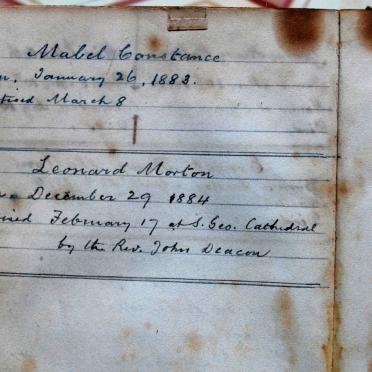 Mabel Constance
n. January 26, 1883.
tised March 8
Leonard Morton
n. December 29 1884
ised February 17 at S. Geo. Cathedral
by the Rev. John Deacon